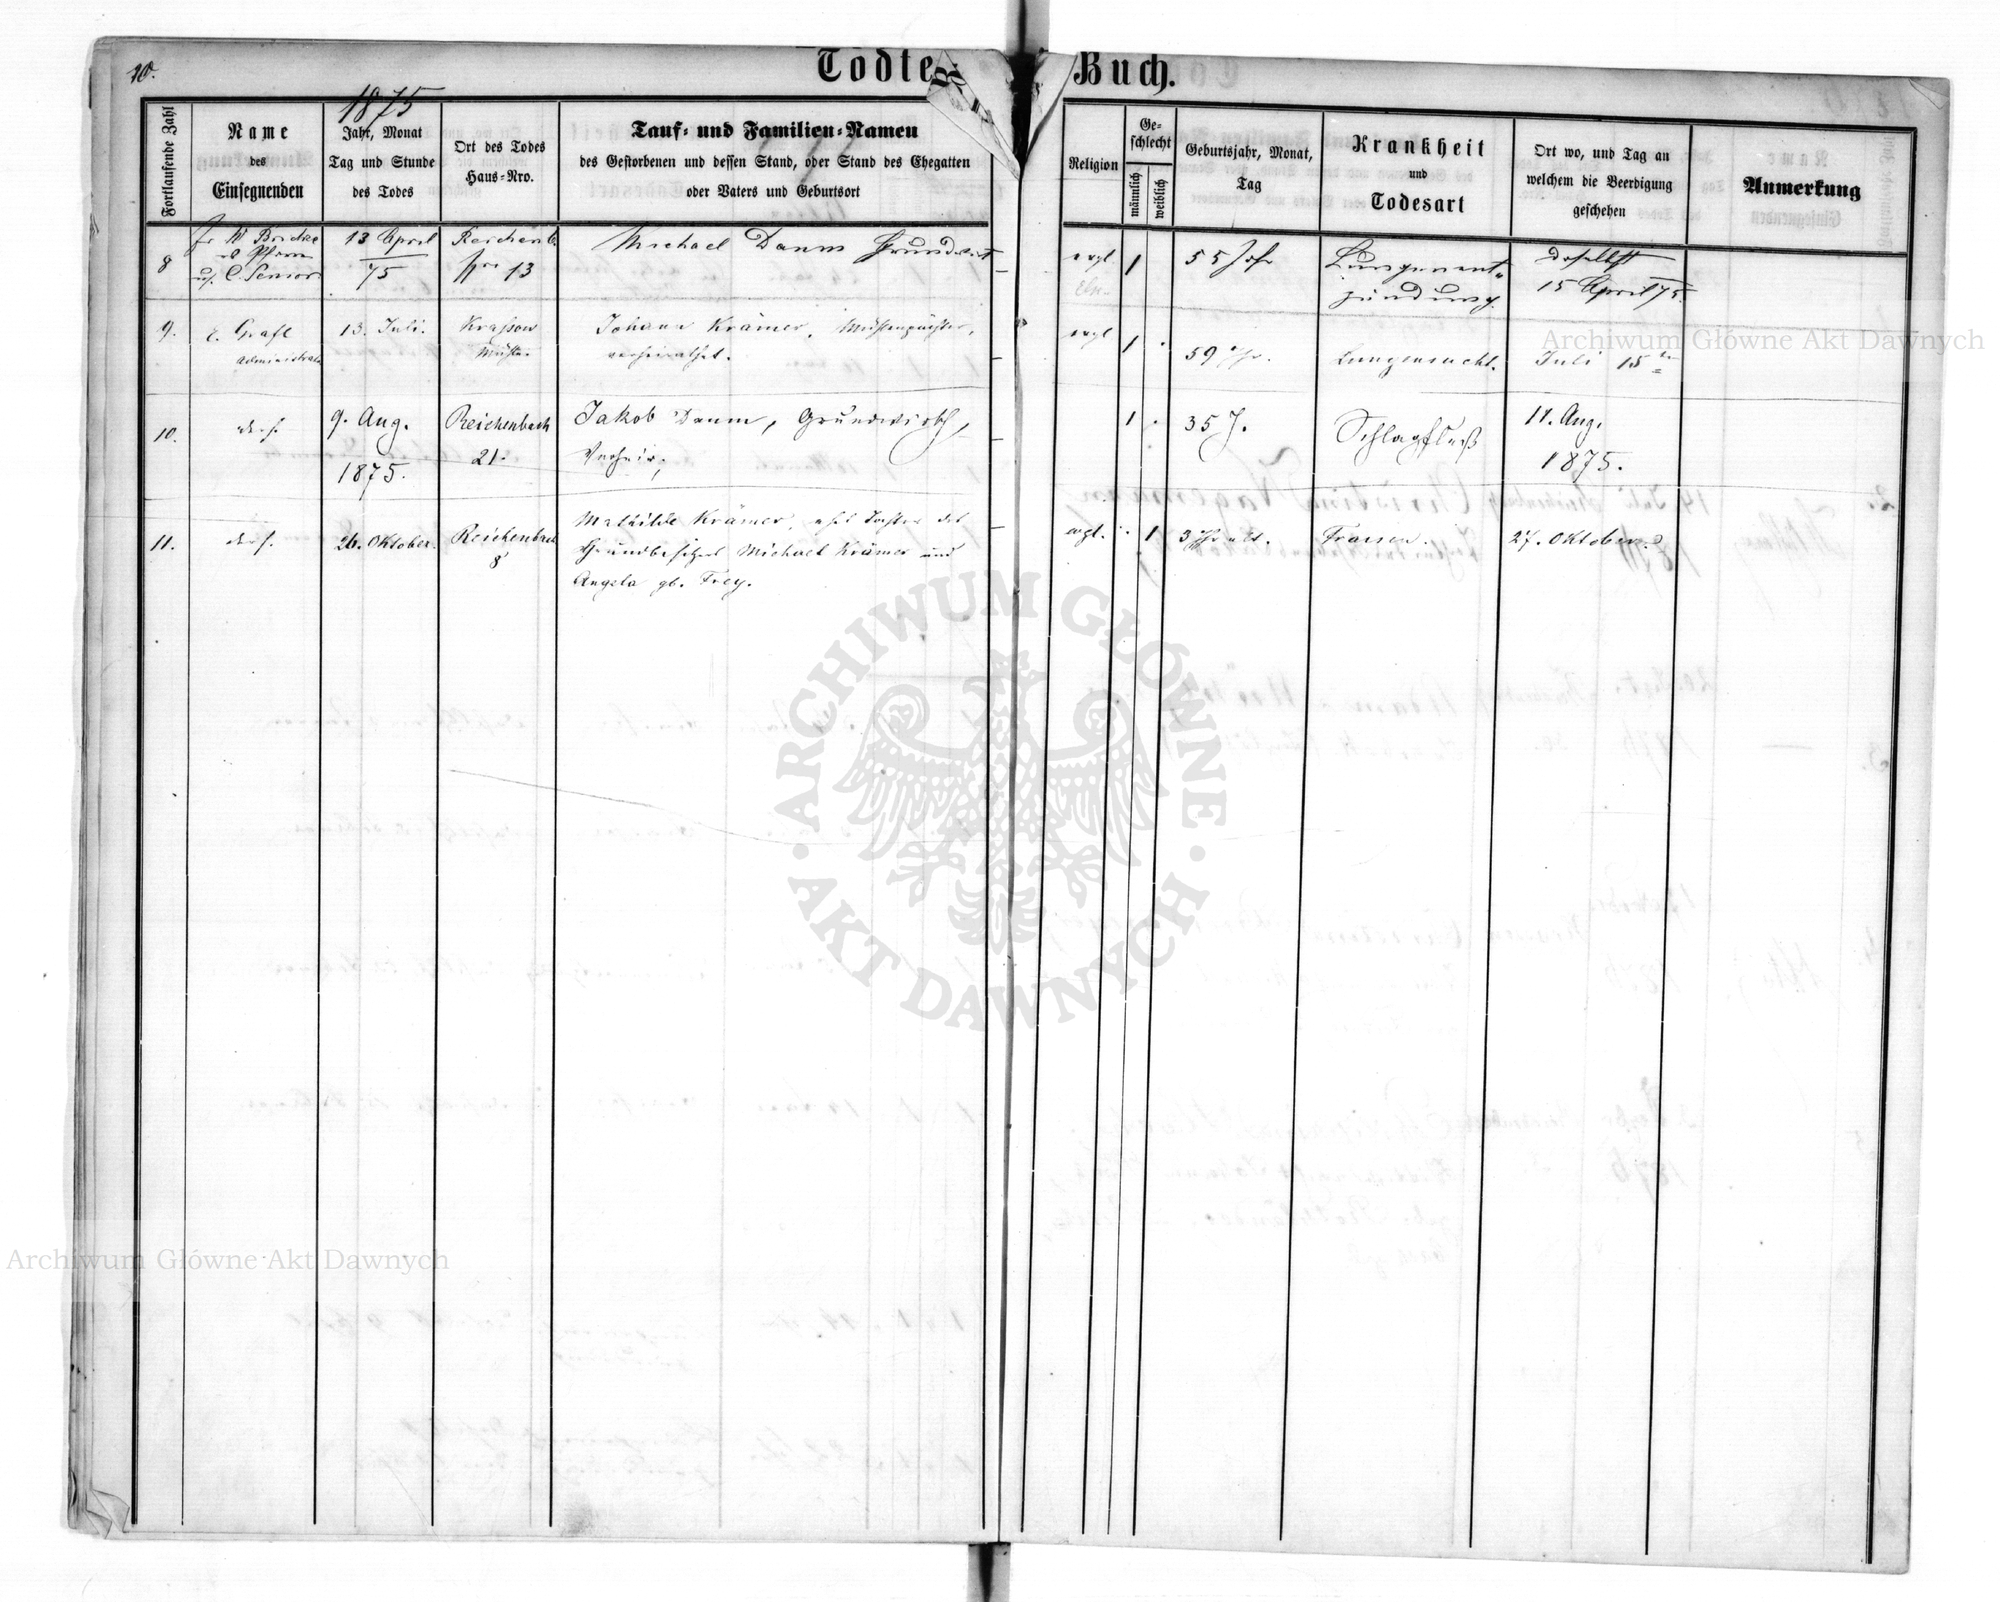 20.
Todten
Buch.
1875
Fortlaufende Zahl
Name
des
Einsegnenden
Jahr, Monat
Tag und Stunde
des Todes
Ort des Todes
Haus-Nro.
Tauf- und Familien-Namen
des Gestorbenen und dessen Stand, oder Stand des Ehegatten
oder Vaters und Geburtsort
Religion
Ge-
schlecht
männlich
weiblich
Geburtsjahr, Monat,
Tag
Krankheit
und
Todesart
Ort wo, und Tag an
welchem die Beerdigung
geschehen
Anmerkung
8
Pfarrer
C. Senior
13 April
75
Reichenb.
Nro 13
Michael Daum Grundwirt
evgl
1
55 Jahr
Lungenent-
zündung
daselbst
15 April 75.
9.
Graff
Administrator
13. Juli.
Johann Krämer, Mühlenpächter,
verheirathet.
evgl
1
59 Jhr.
Lungensucht.
Juli 15
10.
ders.
9. Aug.
1875.
Reichenbach
21.
Jakob Daum, Grundwirth,
Verheir.
1
35 J.
Schlagfluß
11. Aug.
1875.
11.
ders.
26. Oktober.
Reichenbach
8
Mathilde Krämer, ehel. Tochter des
Grundbesitzers Michael Krämer und
Angela gb. Frey.
evgl.
1
3 Jhr alt.
Fraisen.
27. Oktober.
Archiwum Główne Akt Dawnych
ARCHIWUM GŁÓWNE · AKT DAWNYCH ·
Archiwum Główne Akt Dawnych